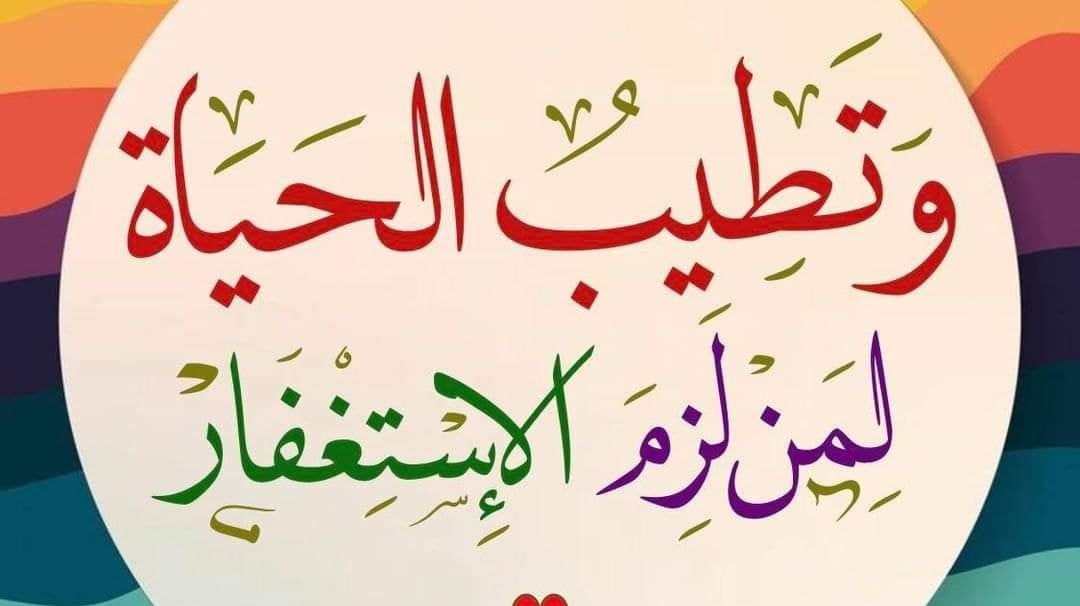 وَتَطِيبُ الحَيَاة
لِمَن لَزِمَ الإستِغْفَار